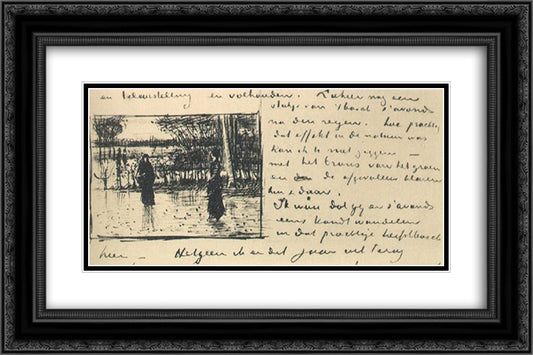 en teleurstelling en volhouden. Ziehier nog een
stukje van 't bosch 's avonds
na den regen. hoe prachtig
dat effekt in de natuur was
kan ik U niet zeggen —
met het brons van het groen
en de afgevallen blaren
hier & daar.
Ik wou dat gij eens 's avonds
eens kondt wandelen
in dat prachtige herfstbosch
hier. — Hetgeen ik er dit jaar uit terug